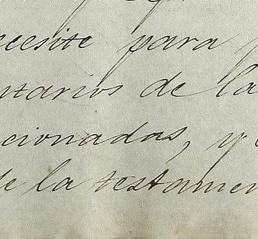 ecesite para
ntarios de la
cionadas, y
de la testamen